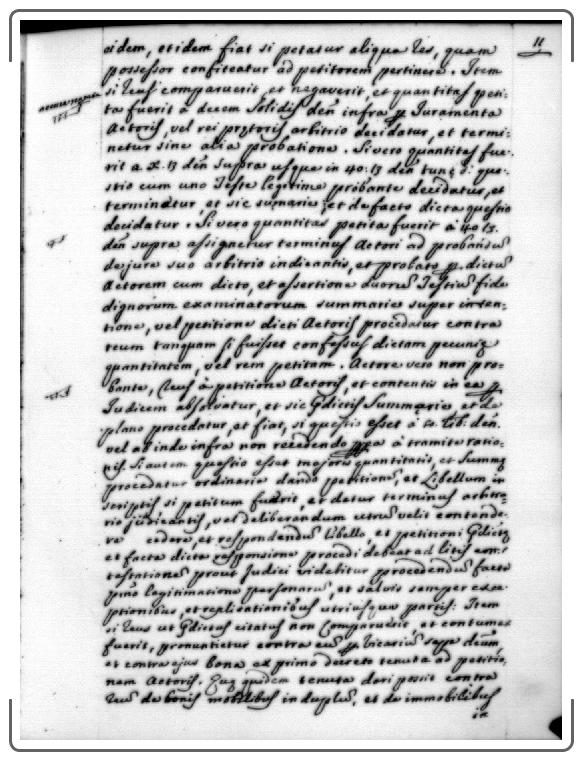 11
eidem, et idem fiat si petatur aliqua res, quam
possessor confiteatur ad petitorem pertinere. Item
si Reus comparuerit, et negaverit, et quantitas peti-
ta fuerit a decem Solidis den̄ infra p̱ Iuramenta
Actoris, vel rei prętoris, arbitrio decidatur, et termi-
netur sine alia probatione. Si vero quantitas fue-
rit a X. ẞ den̄ supra usque in 40: ẞ den̄ tunc si que-
stio cum uno Teste legitime probante decidatur, et
terminetur, et sic sumarie, et de facto dicta questio
decidatur. Si vero quantitas petita fuerit à 40 ẞ.
den̄ supra assignetur terminus Actori ad probandū
de jure suo arbitrio indicantis, et probato p̱ dictū
Actorem cum dicto, et assertione duorū Testiū fide
dignorum examinatorum summarie super inten-
tione, vel petitione dicti Actoris procedatur contra
reum tanquam si fuisset confessus dictam pecunię
quantitatem, vel rem petitam. Actore vero non pro-
bante, Reus à petitione Actoris, et contentis in ea p̱
Iudicem absolvatur, et sic Pdictis Summarie et de
plano procedatur, et fiat, si questio esset à 10 Lib: den̄.
vel ab inde infra non recedendo à tramite ratio-
nis. Si autem questio esset majoris quantitatis, et Summę
procedatur ordinarie dando petitionē, et Libellum in
scriptis si petitum fuerit, et datur terminus arbitra-
rio judicantis, vel deliberandum utrū velit contende-
re cedere, et respondendū libello, et petitioni Pdictę
et facta dicta responsione procedi debeat ad litis con-
testationē prout Iudici videbitur procedendū facta
primo legitimatione personarū, et salvis semper exce
ptionibus, et replicationibus utriusque partis: Item
si Reus ut Pdictus citatus non Comparuerit, et contumax
fuerit, pronuntietur contra eū p̱ Vicariū
et contra ejus bona ex primo decreto tenuta ad petitio-
nem Actoris. Quę quidem tenuta dari possit contra
Reū de bonis mobilibus in duplū, et de immobilibus
in